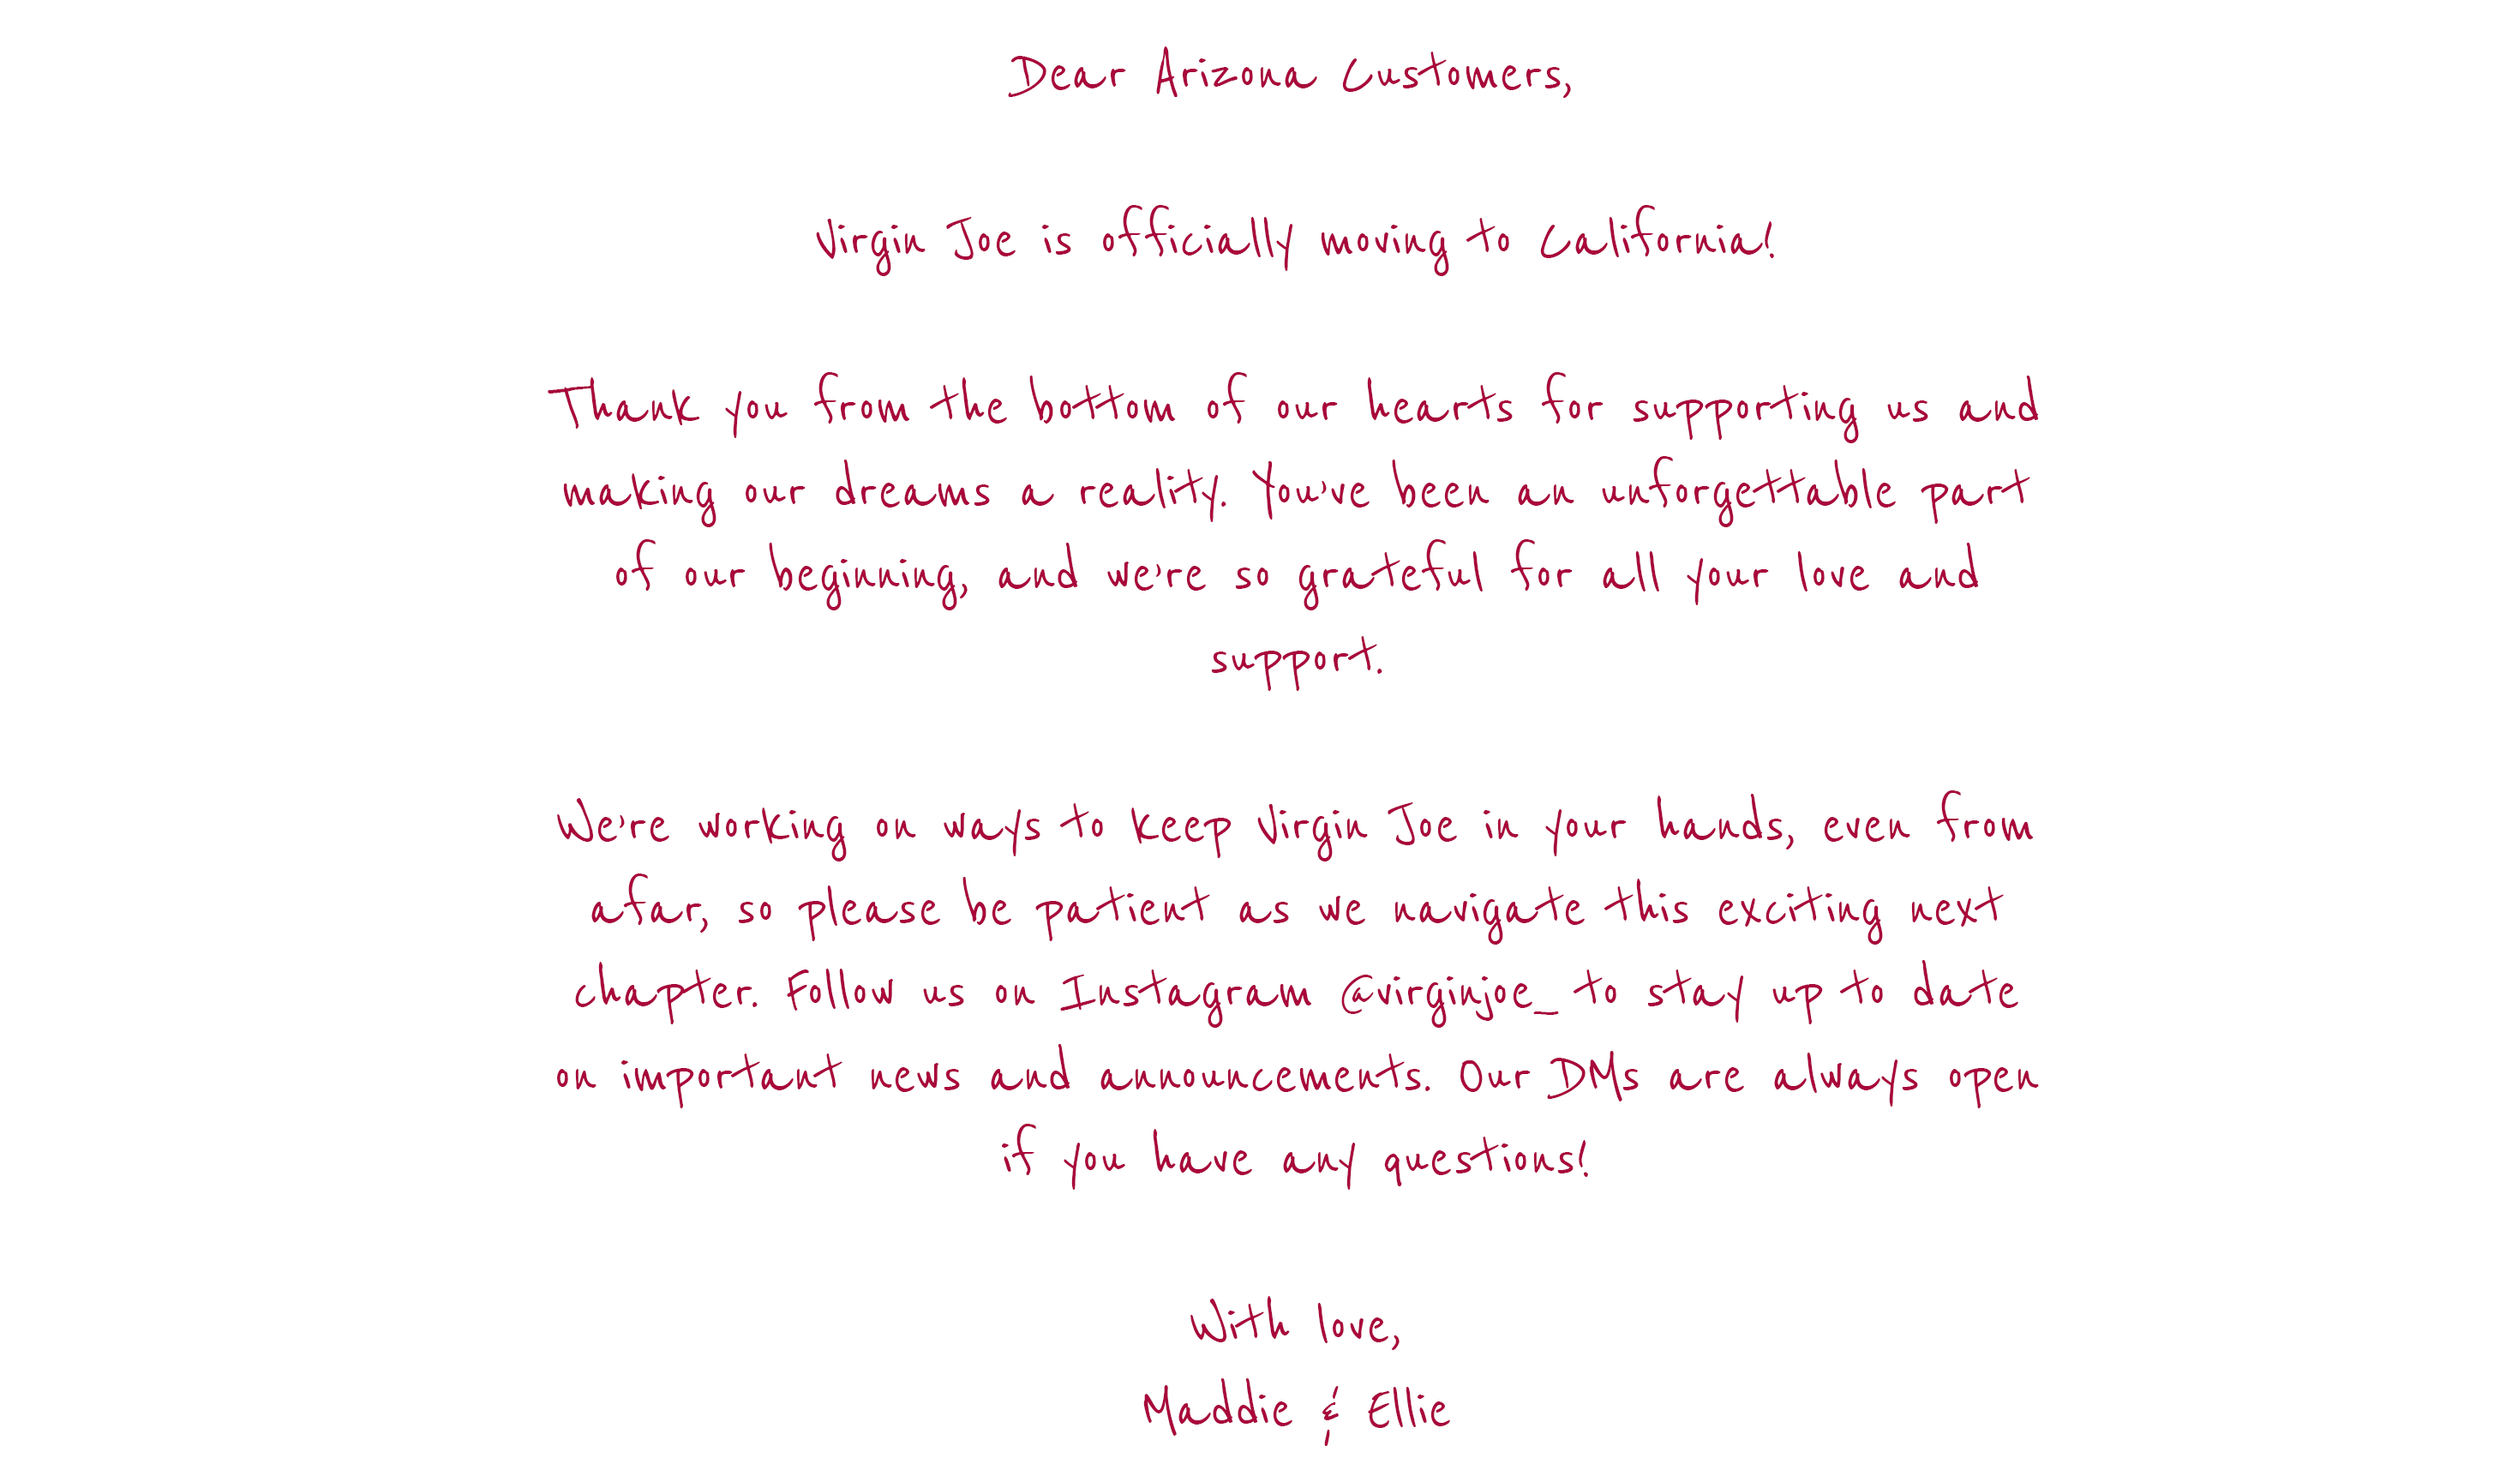 Dear Arizona Customers,
Virgin Joe is officially moving to California!
Thank you from the bottom of our hearts for supporting us and
making our dreams a reality. You've been an unforgettable part
of our beginning, and we're so grateful for all your love and
support.
We're working on ways to keep Virgin Joe in your hands, even from
afar, so please be patient as we navigate this exciting next
chapter. Follow us on Instagram @virginjoe_ to stay up to date
on important news and announcements. Our DMs are always open
if you have any questions!
With love,
Maddie & Ellie